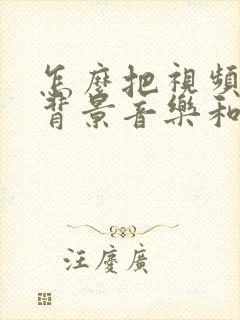 怎麼把視頻
背景音樂和
汪慶廣